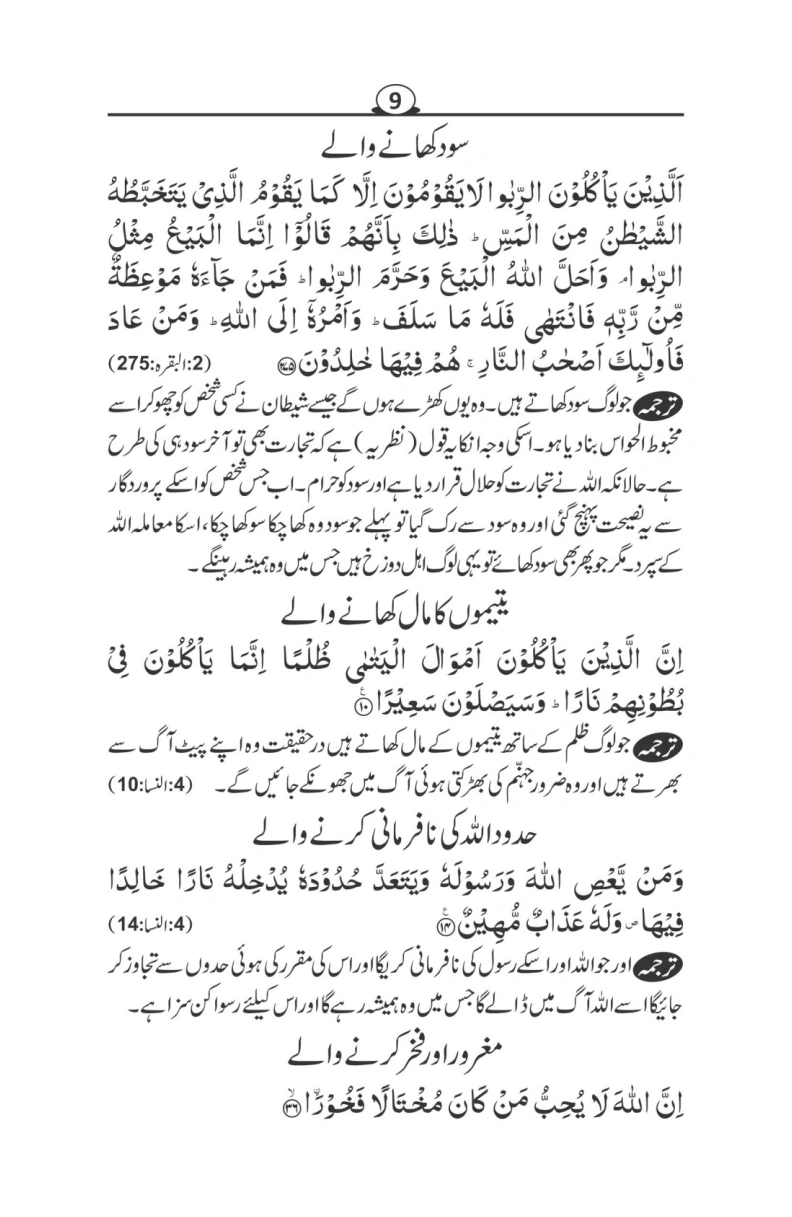 9
سود کھانے والے
اَلَّذِیْنَ یَاْکُلُوْنَ الرِّبٰوا لَا یَقُوْمُوْنَ اِلَّا کَمَا یَقُوْمُ الَّذِیْ یَتَخَبَّطُهُ
الشَّیْطٰنُ مِنَ الْمَسِّ ؕ ذٰلِکَ بِاَنَّهُمْ قَالُوْۤا اِنَّمَا الْبَیْعُ مِثْلُ
الرِّبٰوا ۘ وَاَحَلَّ اللهُ الْبَیْعَ وَحَرَّمَ الرِّبٰوا ؕ فَمَنْ جَآءَهٗ مَوْعِظَةٌ
مِّنْ رَّبِّهٖ فَانْتَهٰی فَلَهٗ مَا سَلَفَ ؕ وَاَمْرُهٗۤ اِلَی اللهِ ؕ وَمَنْ عَادَ
فَاُولٰٓئِکَ اَصْحٰبُ النَّارِ ۚ هُمْ فِیْهَا خٰلِدُوْنَ ﴿۲۷۵﴾ (2:البقرہ:275)
ترجمہ جو لوگ سود کھاتے ہیں۔ وہ یوں کھڑے ہوں گے جیسے شیطان نے کسی شخص کو چھو کر اسے
مخبوط الحواس بنا دیا ہو۔ اسکی وجہ انکا یہ قول (نظریہ) ہے کہ تجارت بھی تو آخر سود ہی کی طرح
ہے۔ حالانکہ اللہ نے تجارت کو حلال قرار دیا ہے اور سود کو حرام۔ اب جس شخص کو اسکے پروردگار
سے یہ نصیحت پہنچ گئی اور وہ سود سے رک گیا تو پہلے جو سود وہ کھا چکا سو کھا چکا، اسکا معاملہ اللہ
کے سپرد۔ مگر جو پھر بھی سود کھائے تو یہی لوگ اہل دوزخ ہیں جس میں وہ ہمیشہ رہینگے۔
یتیموں کا مال کھانے والے
اِنَّ الَّذِیْنَ یَاْکُلُوْنَ اَمْوَالَ الْیَتٰمٰی ظُلْمًا اِنَّمَا یَاْکُلُوْنَ فِیْ
بُطُوْنِهِمْ نَارًا ؕ وَسَیَصْلَوْنَ سَعِیْرًا ﴿۱۰﴾ ع
ترجمہ جو لوگ ظلم کے ساتھ یتیموں کے مال کھاتے ہیں درحقیقت وہ اپنے پیٹ آگ سے
بھرتے ہیں اور وہ ضرور جہنّم کی بھڑکتی ہوئی آگ میں جھونکے جائیں گے۔ (4:النسا:10)
حدود اللہ کی نافرمانی کرنے والے
وَمَنْ یَّعْصِ اللهَ وَرَسُوْلَهٗ وَیَتَعَدَّ حُدُوْدَهٗ یُدْخِلْهُ نَارًا خَالِدًا
فِیْهَا ۪ وَلَهٗ عَذَابٌ مُّهِیْنٌ ﴿۱۴﴾ ع (4:النسا:14)
ترجمہ اور جو اللہ اور اسکے رسول کی نافرمانی کریگا اور اس کی مقرر کی ہوئی حدوں سے تجاوز کر
جائیگا اسے اللہ آگ میں ڈالے گا جس میں وہ ہمیشہ رہے گا اور اس کیلئے رسوا کن سزا ہے۔
مغرور اور فخر کرنے والے
اِنَّ اللهَ لَا یُحِبُّ مَنْ کَانَ مُخْتَالًا فَخُوْرَا ﴿۳۶﴾